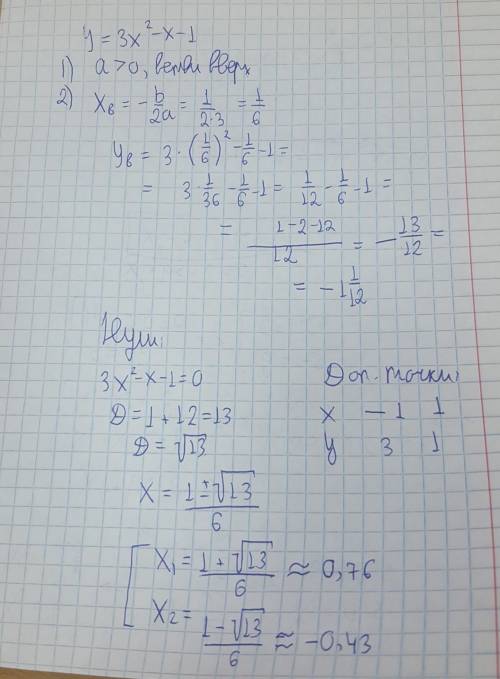 y = 3x² - x - 1
1) a > 0, ветви вверх
2) xв = - b/2a = 1/(2·3) = 1/6
yв = 3 · (1/6)² - 1/6 - 1 =
= 3 · 1/36 - 1/6 - 1 = 1/12 - 1/6 - 1 =
= (1 - 2 - 12)/12 = - 13/12 =
= - 1 1/12
Нули:
3x² - x - 1 = 0
D = 1 + 12 = 13
D = √13
x = (1 ± √13)/6
[ x₁ = (1 + √13)/6 ≈ 0,76
x₂ = (1 - √13)/6 ≈ - 0,43
Доп. точки:
x - 1 1
y 3 1